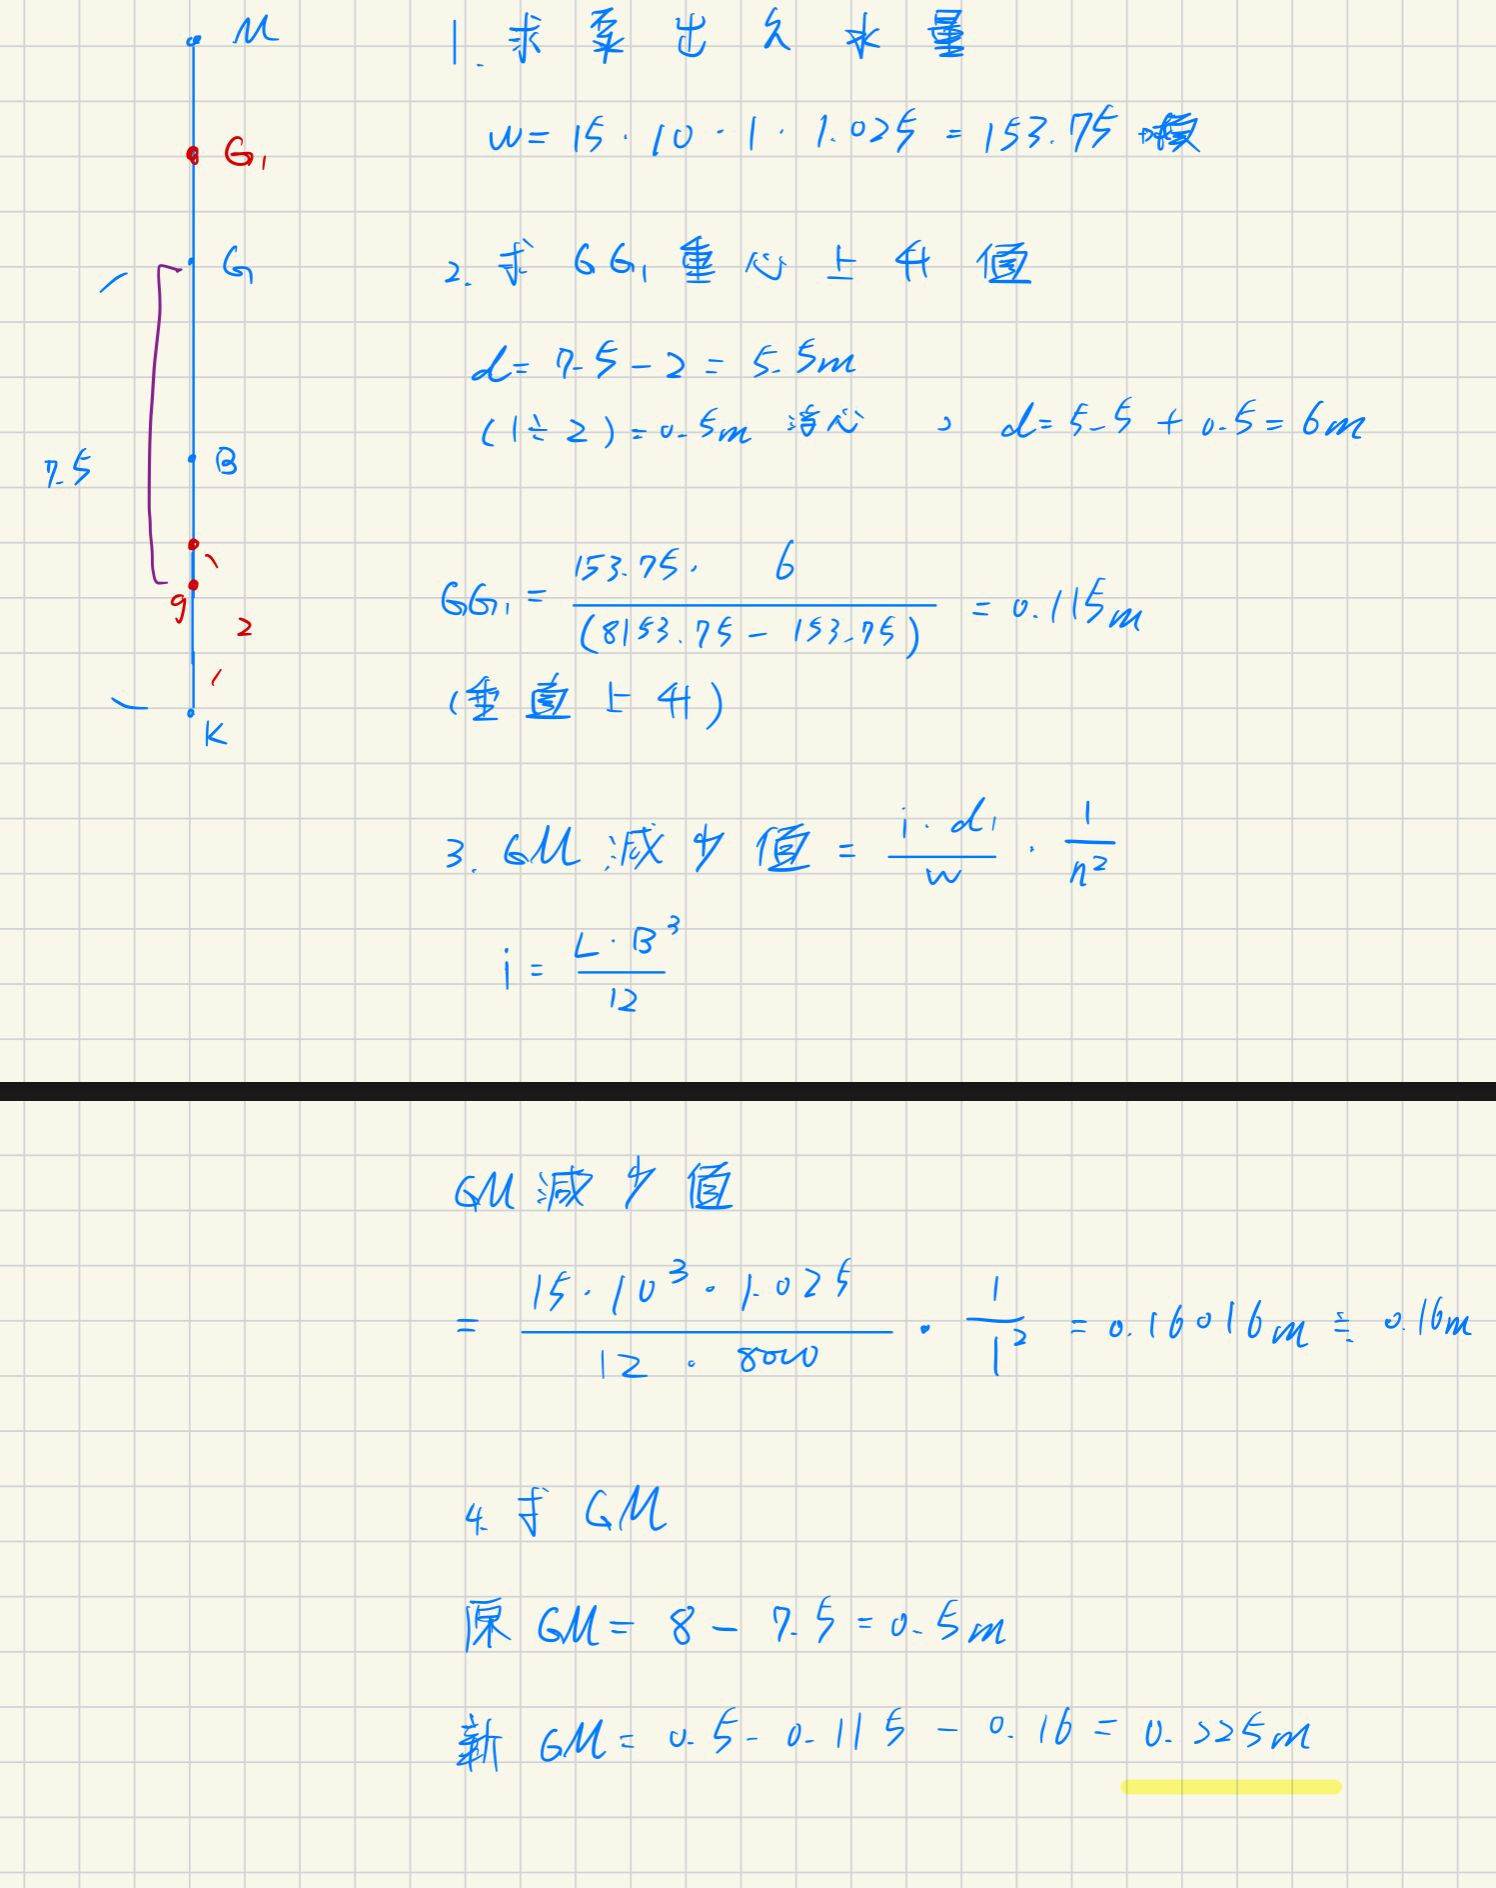 M
G₁
G
7.5
B
g
2
K
1. 求泵出之水量
w = 15 · 10 · 1 · 1.025 = 153.75 噸
2. 求 GG₁ 重心上升值
d = 7.5 - 2 = 5.5m
(1÷2) = 0.5m 浮心 , d = 5.5 + 0.5 = 6m
GG₁ = 153.75 · 6 / (8153.75 - 153.75) = 0.115m
(垂直上升)
3. GM 減少值 = i · d₁ / w · 1 / n²
i = L · B³ / 12
GM 減少值
= 15 · 10³ · 1.025 / 12 · 8000 · 1 / 1² = 0.16016m ≒ 0.16m
4. 求 GM
原 GM = 8 - 7.5 = 0.5m
新 GM = 0.5 - 0.115 - 0.16 = 0.225m